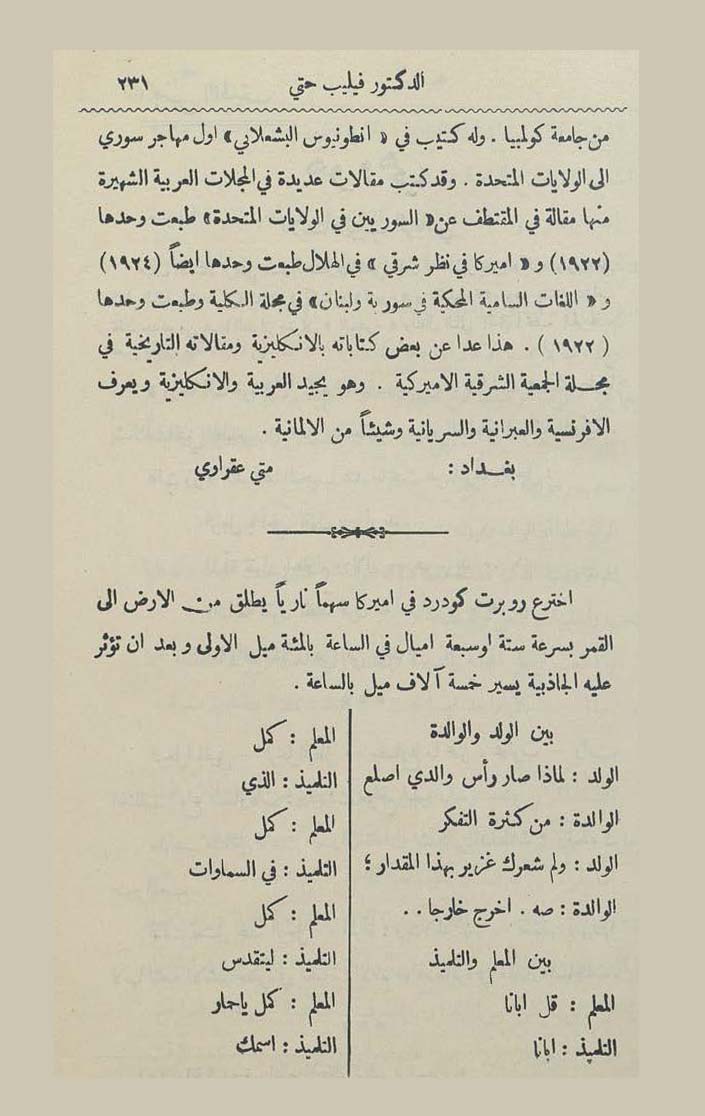 الدكتور فيليب حتي ٢٣١
من جامعة كولمبيا . وله كتيب في « انطونيوس البشعلاني » اول مهاجر سوري
الى الولايات المتحدة . وقد كتب مقالات عديدة في المجلات العربية الشهيرة
منها مقالة في المقتطف عن « السوريين في الولايات المتحدة » طبعت وحدها
(١٩٢٢) و « اميركا في نظر شرقي » في الهلال طبعت وحدها ايضاً (١٩٢٤)
و « اللغات السامية المحكية في سورية ولبنان » في مجلة الكلية وطبعت وحدها
( ١٩٢٢ ) . هذا عدا عن بعض كتاباته بالانكليزية ومقالاته التاريخية في
مجلة الجمعية الشرقية الاميركية . وهو يجيد العربية والانكليزية ويعرف
الافرنسية والعبرانية والسريانية وشيئاً من الالمانية .
بغداد : متي عقراوي
اخترع روبرت كودرد في اميركا سهماً نارياً يطلق من الارض الى
القمر بسرعة ستة او سبعة اميال في الساعة بالمئة ميل الاولى وبعد ان تؤثر
عليه الجاذبية يسير خمسة آلاف ميل بالساعة .
بين الولد والوالدة
الولد : لماذا صار رأس والدي اصلع
الوالدة : من كثرة التفكر
الولد : ولم شعرك غزير بهذا المقدار ؟
الوالدة : صه . اخرج خارجا . .
بين المعلم والتلميذ
المعلم : قل ابانا
التلميذ : ابانا
المعلم : كمل
التلميذ : الذي
المعلم : كمل
التلميذ : في السماوات
المعلم : كمل
التلميذ : ليتقدس
المعلم : كمل ياحمار
التلميذ : اسمك